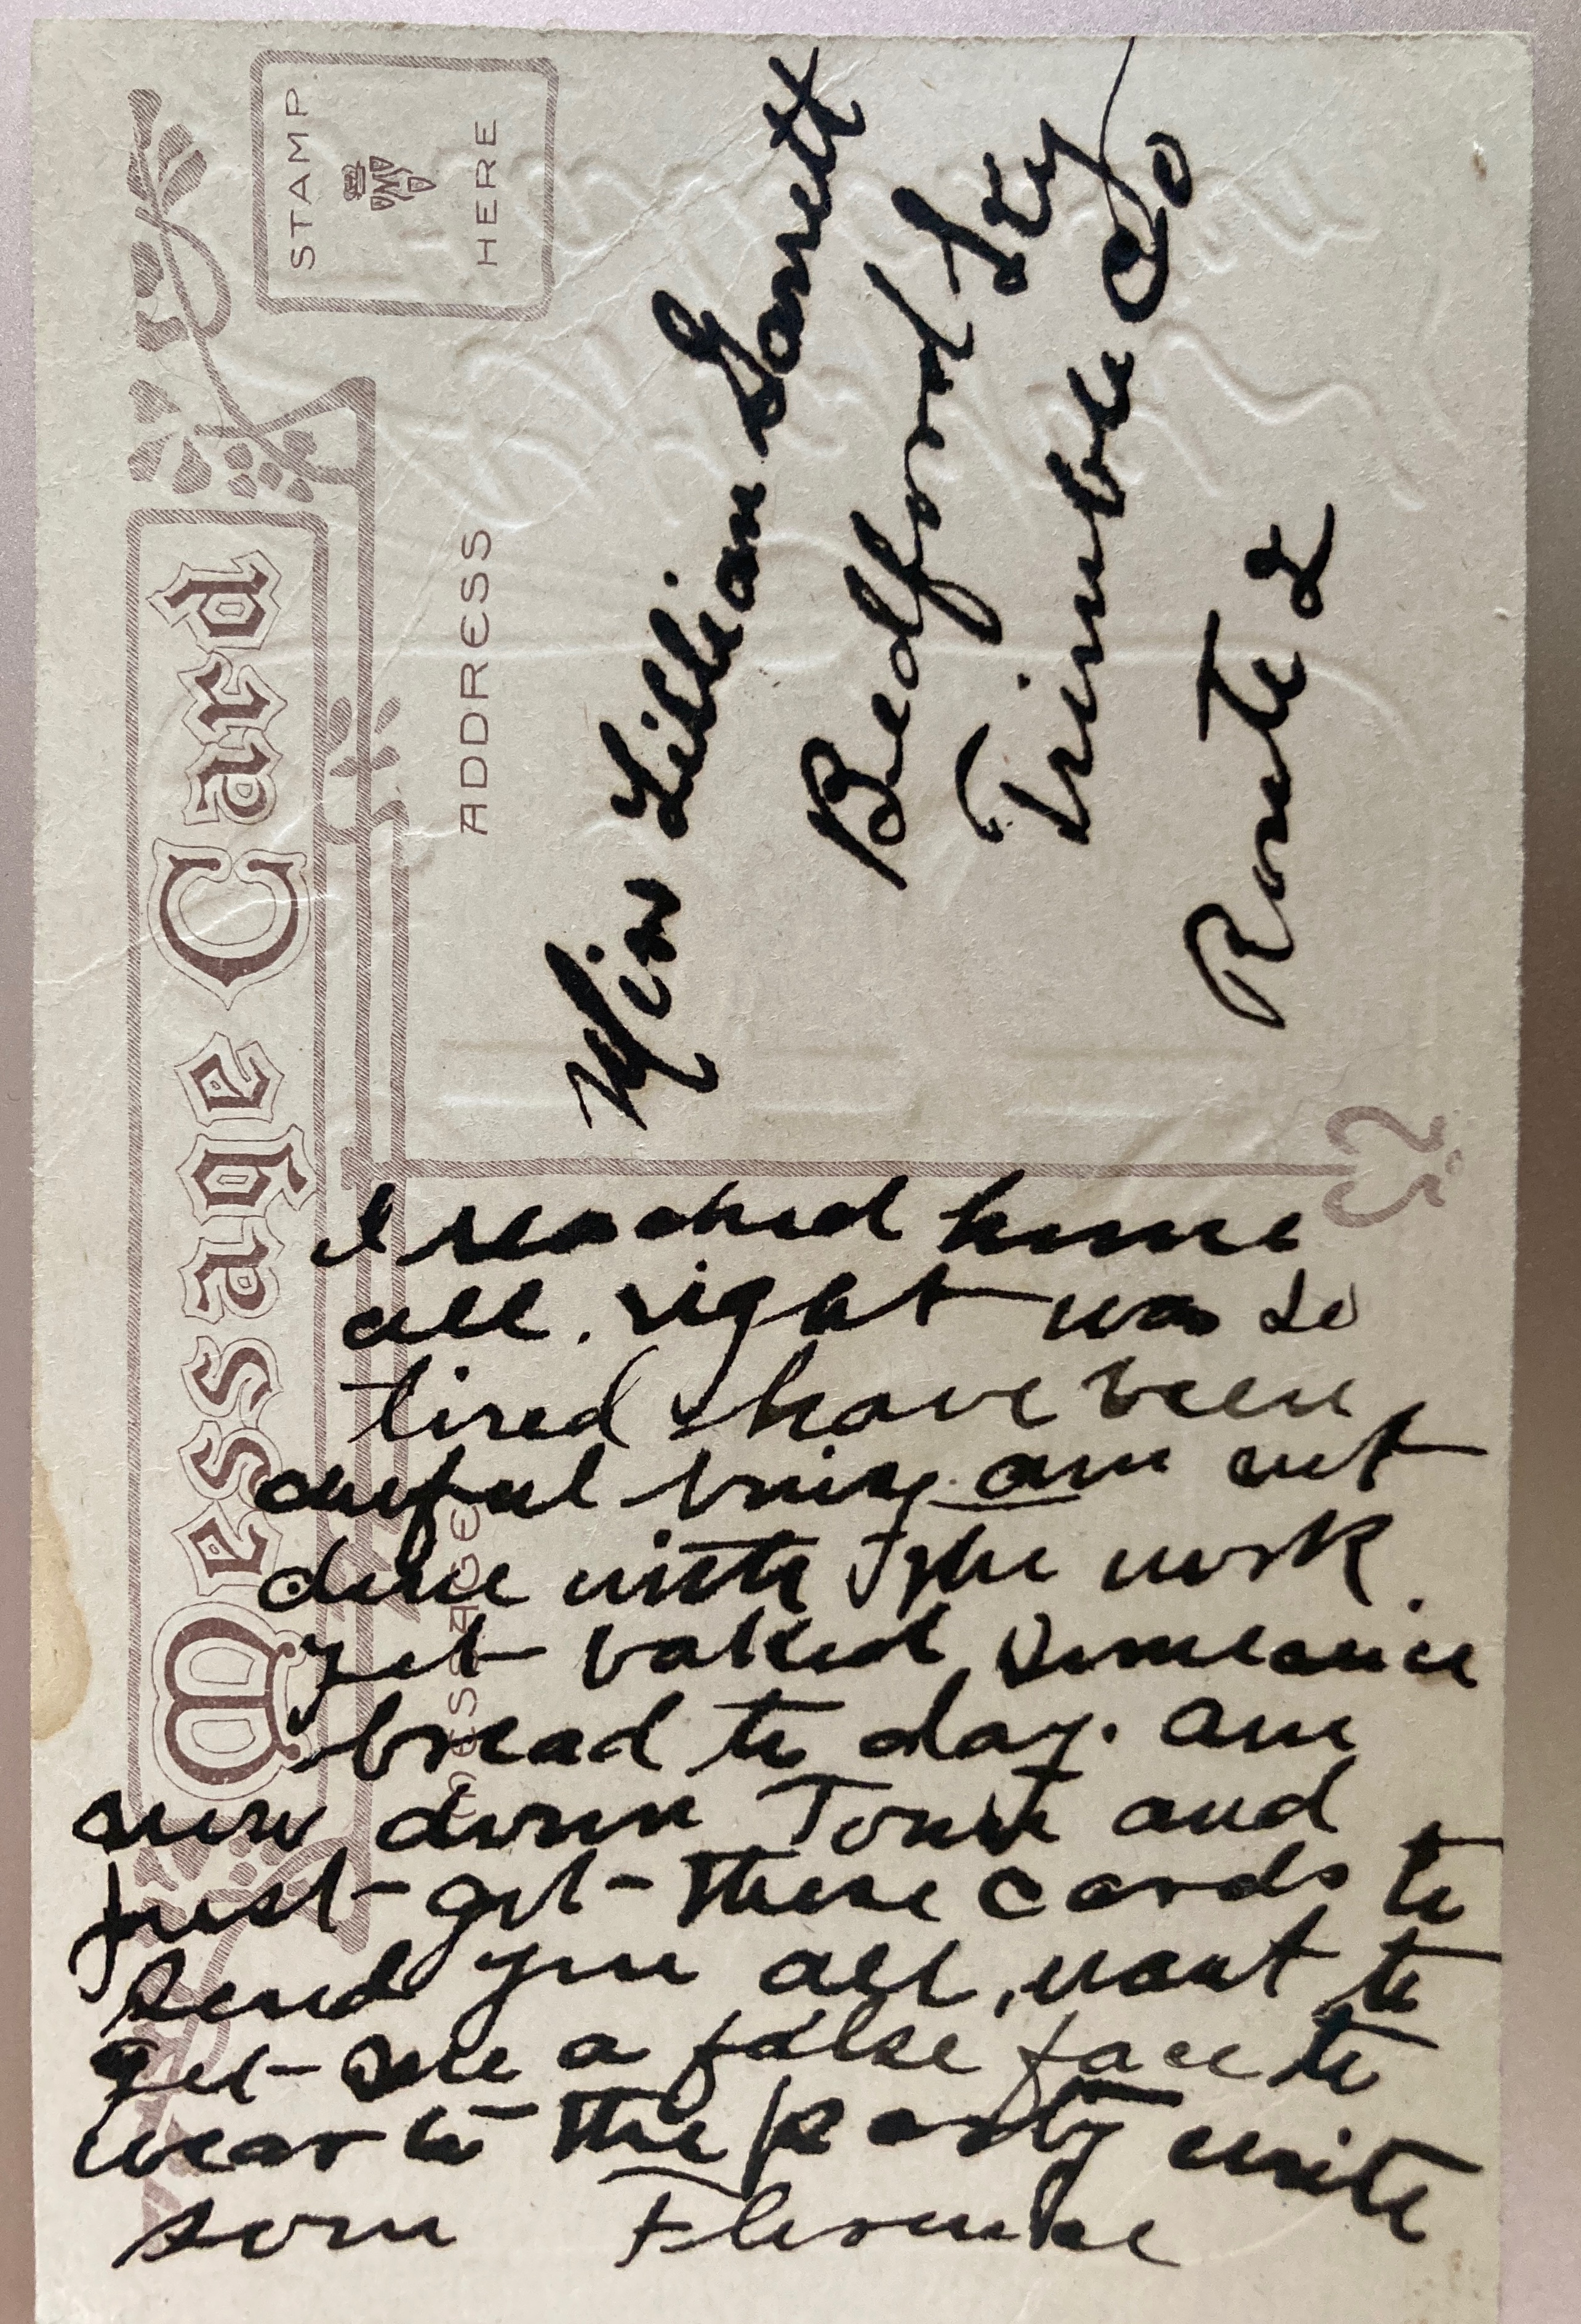 Message Card
STAMP
HERE
ADDRESS
MESSAGE
Miss Lillian Garrett
Bedford Ky
Trimble Co
Route 2
I reached home
all right was so
tired & have been
awful busy. am not
done with the work
yet baked
bread to day. am
now down Town and
just got these cards to
send you all, want to
get me a false face to
wear to the party write
soon Florence